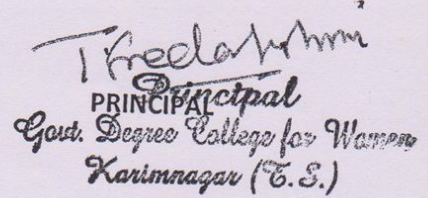 Principal
PRINCIPAL
Govt. Degree College for Women
Karimnagar (T.S.)